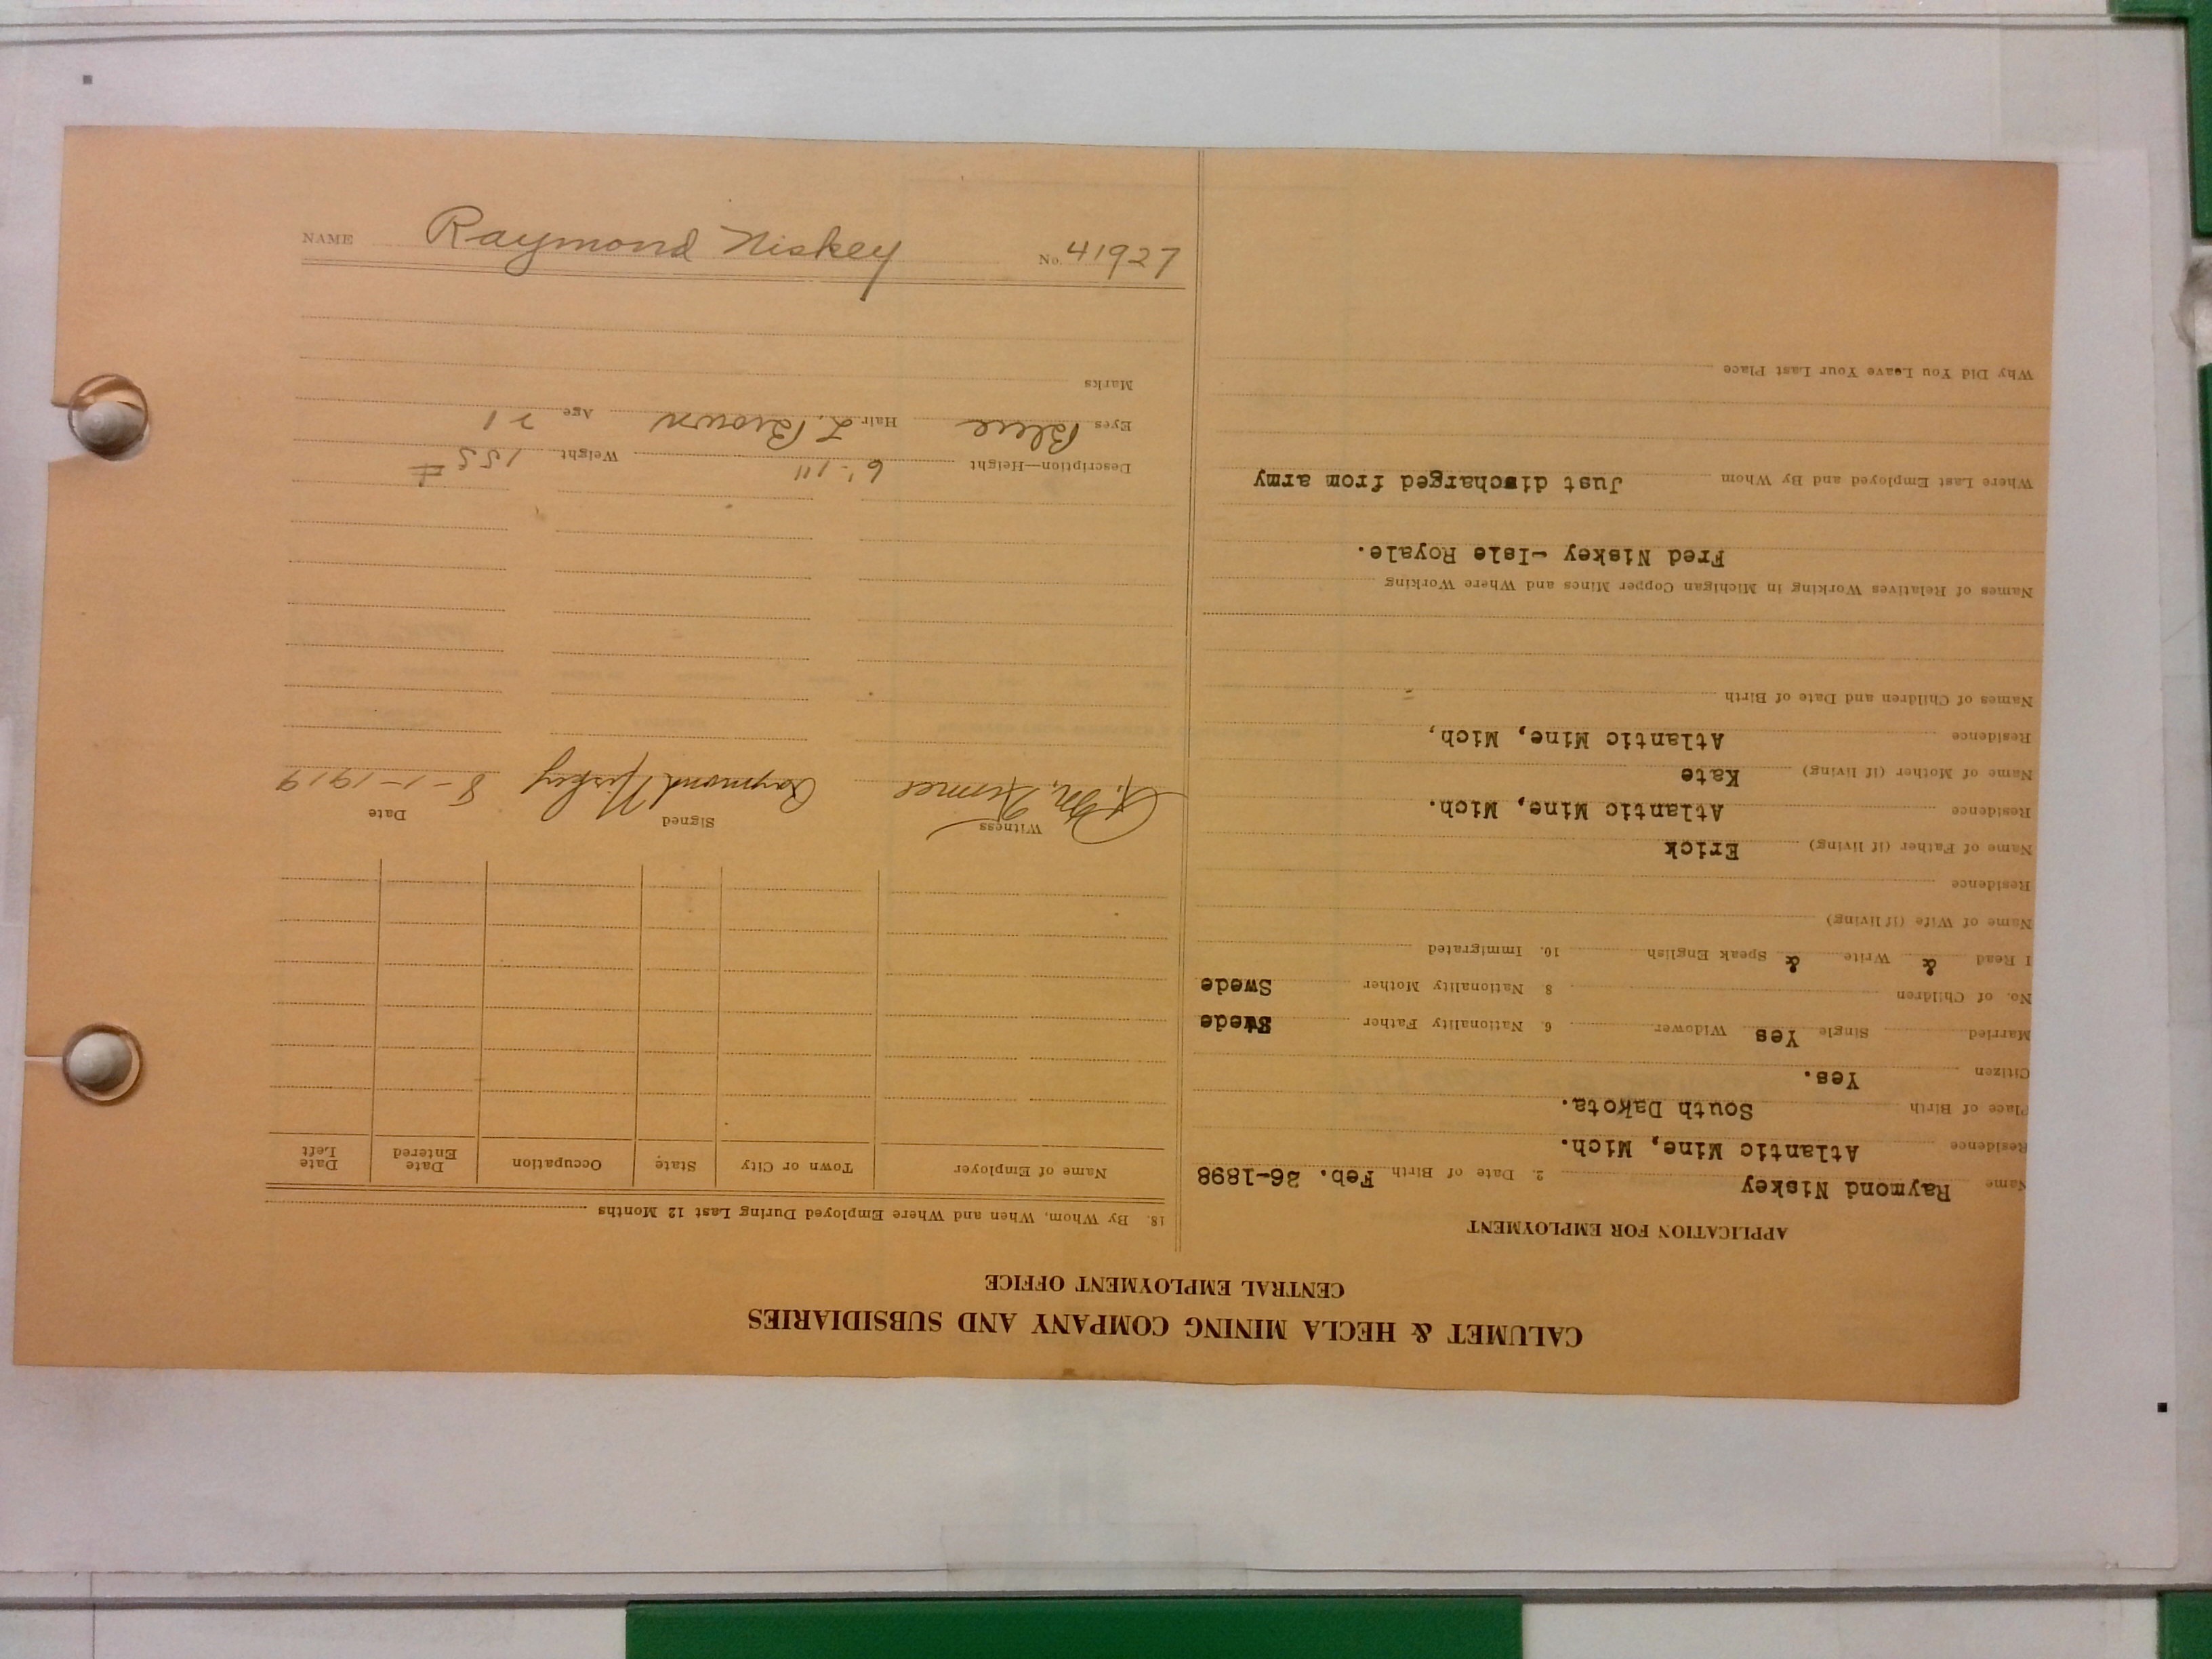 CALUMET & HECLA MINING COMPANY AND SUBSIDIARIES
CENTRAL EMPLOYMENT OFFICE
APPLICATION FOR EMPLOYMENT
Name Raymond Niskey 2. Date of Birth Feb. 26-1898
Residence Atlantic Mine, Mich.
Place of Birth South Dakota.
Citizen Yes.
Married Single Yes Widower 6. Nationality Father Swede
No. of Children 8 Nationality Mother Swede
I Read & Write & Speak English 10. Immigrated
Name of Wife (if living)
Residence
Name of Father (if living) Erick
Residence Atlantic Mine, Mich.
Name of Mother (if living) Kate
Residence Atlantic Mine, Mich,
Names of Children and Date of Birth -
Names of Relatives Working in Michigan Copper Mines and Where Working
Fred Niskey -Isle Royale.
Where Last Employed and By Whom Just discharged from army
Why Did You Leave Your Last Place
18. By Whom, When and Where Employed During Last 12 Months
Name of Employer Town or City State Occupation Date Entered Date Left
Witness Signed Date
Raymond Niskey 8-1-1919
Description—Height 6'-1" Weight 155 #
Eyes Blue Hair L. Brown Age 21
Marks
NAME Raymond Niskey No. 41927